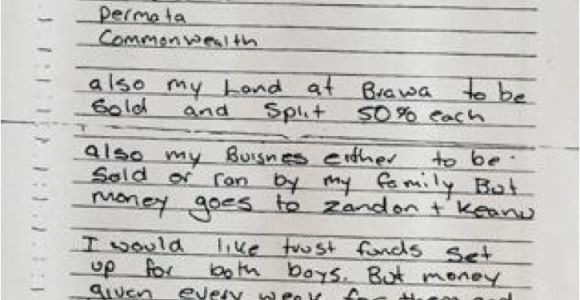 Permata
Commonwealth
also my Land at Brawa to be
Sold and Split 50% each
also my Buisnes either to be
Sold or ran by my family But
money goes to zandon + Keanu
I would like trust funds set
up for both boys. But money
given every week for them and